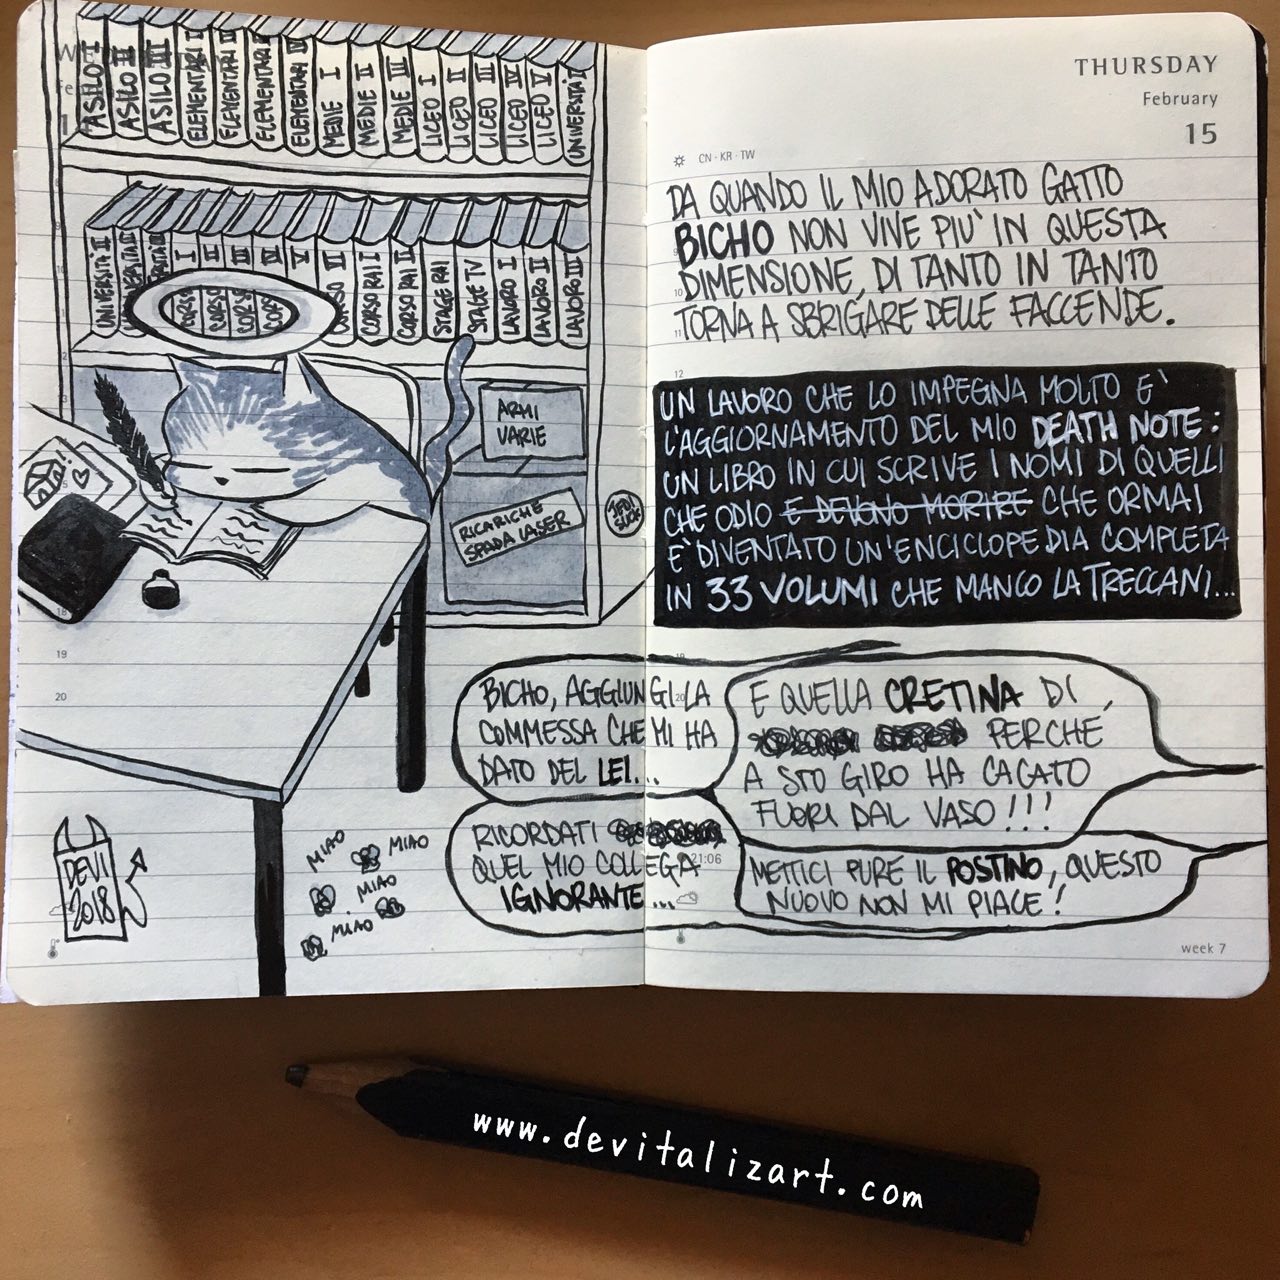 ASILO I
ASILO II
ASILO III
ELEMENTARI I
ELEMENTARI II
ELEMENTARI
ELEMENTARI IV
MEDIE I
MEDIE II
MEDIE III
LICEO I
LICEO II
LICEO III
LICEO IV
LICEO V
UNIVERSITÀ I
UNIVERSITÀ II
CORSO
CORSO
CORSO
CORSO
CORSO RAI I
CORSO RAI II
STAGE RAI
STAGE TV
LAVORO I
LAVORO II
LAVORO III
ARMI
VARIE
RICARICHE
SPADA LASER
19
20
DEVI
2018
MIAO
MIAO
MIAO
MIAO
THURSDAY
February
15
CN · KR · TW
DA QUANDO IL MIO ADORATO GATTO
BICHO NON VIVE PIU' IN QUESTA
DIMENSIONE, DI TANTO IN TANTO
TORNA A SBRIGARE DELLE FACCENDE.
12
UN LAVORO CHE LO IMPEGNA MOLTO E'
L'AGGIORNAMENTO DEL MIO DEATH NOTE:
UN LIBRO IN CUI SCRIVE I NOMI DI QUELLI
CHE ODIO E DEVONO MORIRE CHE ORMAI
E' DIVENTATO UN'ENCICLOPEDIA COMPLETA
IN 33 VOLUMI CHE MANCO LA TRECCANI...
BICHO, AGGIUNGI LA
COMMESSA CHE MI HA
DATO DEL LEI...
E QUELLA CRETINA DI
PERCHÉ
A STO GIRO HA CACATO
FUORI DAL VASO!!!
RICORDATI
QUEL MIO COLLEGA
IGNORANTE...
21:06
METTICI PURE IL POSTINO, QUESTO
NUOVO NON MI PIACE!
week 7
www.devitalizart.com